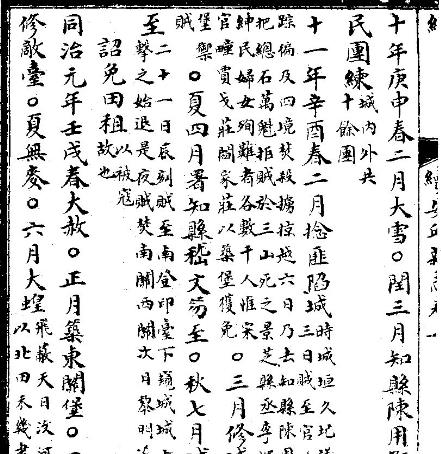 十年庚申春二月大雪○閏三月知縣陳用
民團練城內外共
十餘團
十一年辛酉春二月捻匪陷城時城垣久圮
三日賊至官
踪徧及四境焚殺擄掠越六日乃去知縣陳用
把總石萬魁拒賊於三山死之景芝縣丞李
紳民婦女殉難者各數千人惟宋
官疃賈戈莊閻家莊以築堡獲免○三月修
堡禦
賊○夏四月署知縣嵇文笏至○秋七月
至二十一日辰刻賊至南登印臺下窺城城
擊之始退是夜賊焚南關西關次日黎明
詔免田租以被寇
故也
同治元年壬戌春大赦○正月築東關堡○
修敵臺○夏無麥○六月大蝗飛蔽天日沒河
以北田禾幾